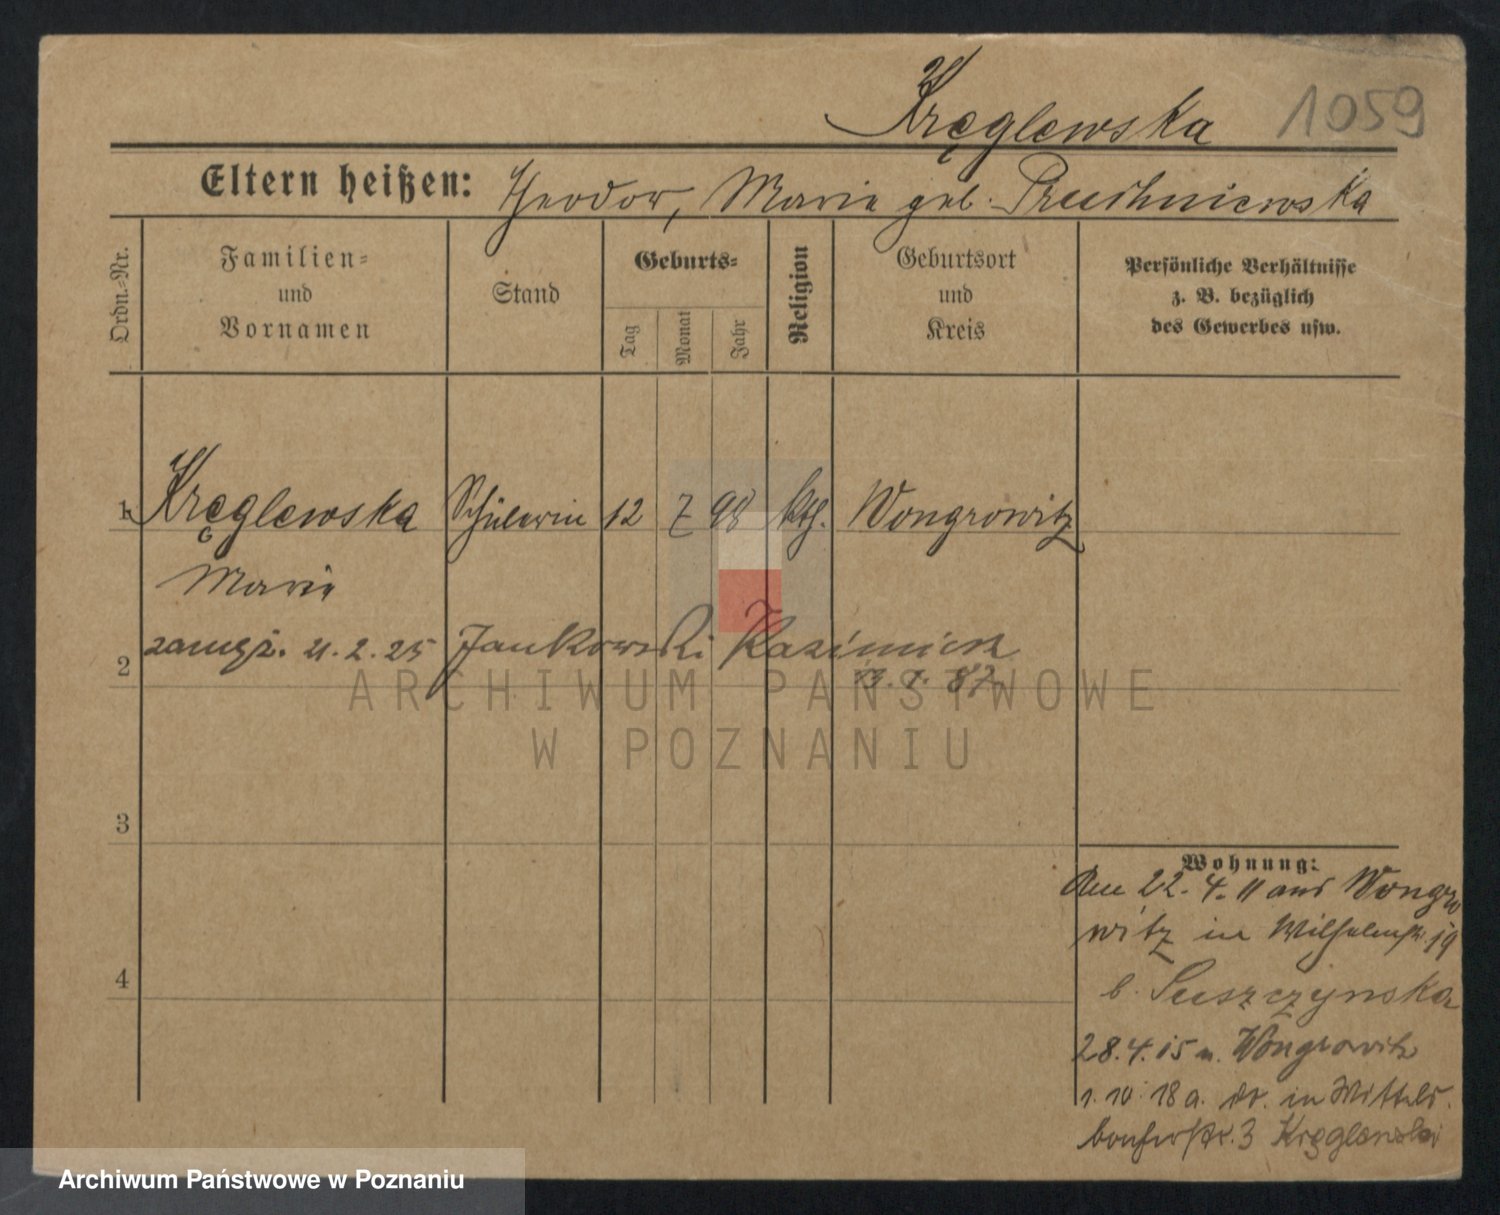 Kręglewska 1059
Eltern heißen: Theodor, Marie geb. Pruchniewska
Ordn.-Nr.
Familien-
und
Vornamen
Stand
Geburts-
Tag
Monat
Jahr
Religion
Geburtsort
und
Kreis
Persönliche Verhältnisse
z. B. bezüglich
des Gewerbes usw.
1 Kręglewska Schülerin 12 7 98 kth. Wongrowitz
Marie
2 zamęż. 21.2.25 Jankowski Kazimierz
87
ARCHIWUM PAŃSTWOWE
W POZNANIU
3
Wohnung:
Am 22.4.11 aus Wongro
witz in Wilhelmstr. 19
b. Suszczynska
4
28.4.15 n. Wongrowitz
1.10.18 a. do. in Mittels
bacherstr. 3 Kręglewski
Archiwum Państwowe w Poznaniu